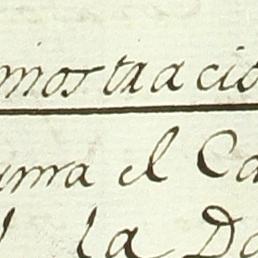 mostracio
uma el Ca
la Do